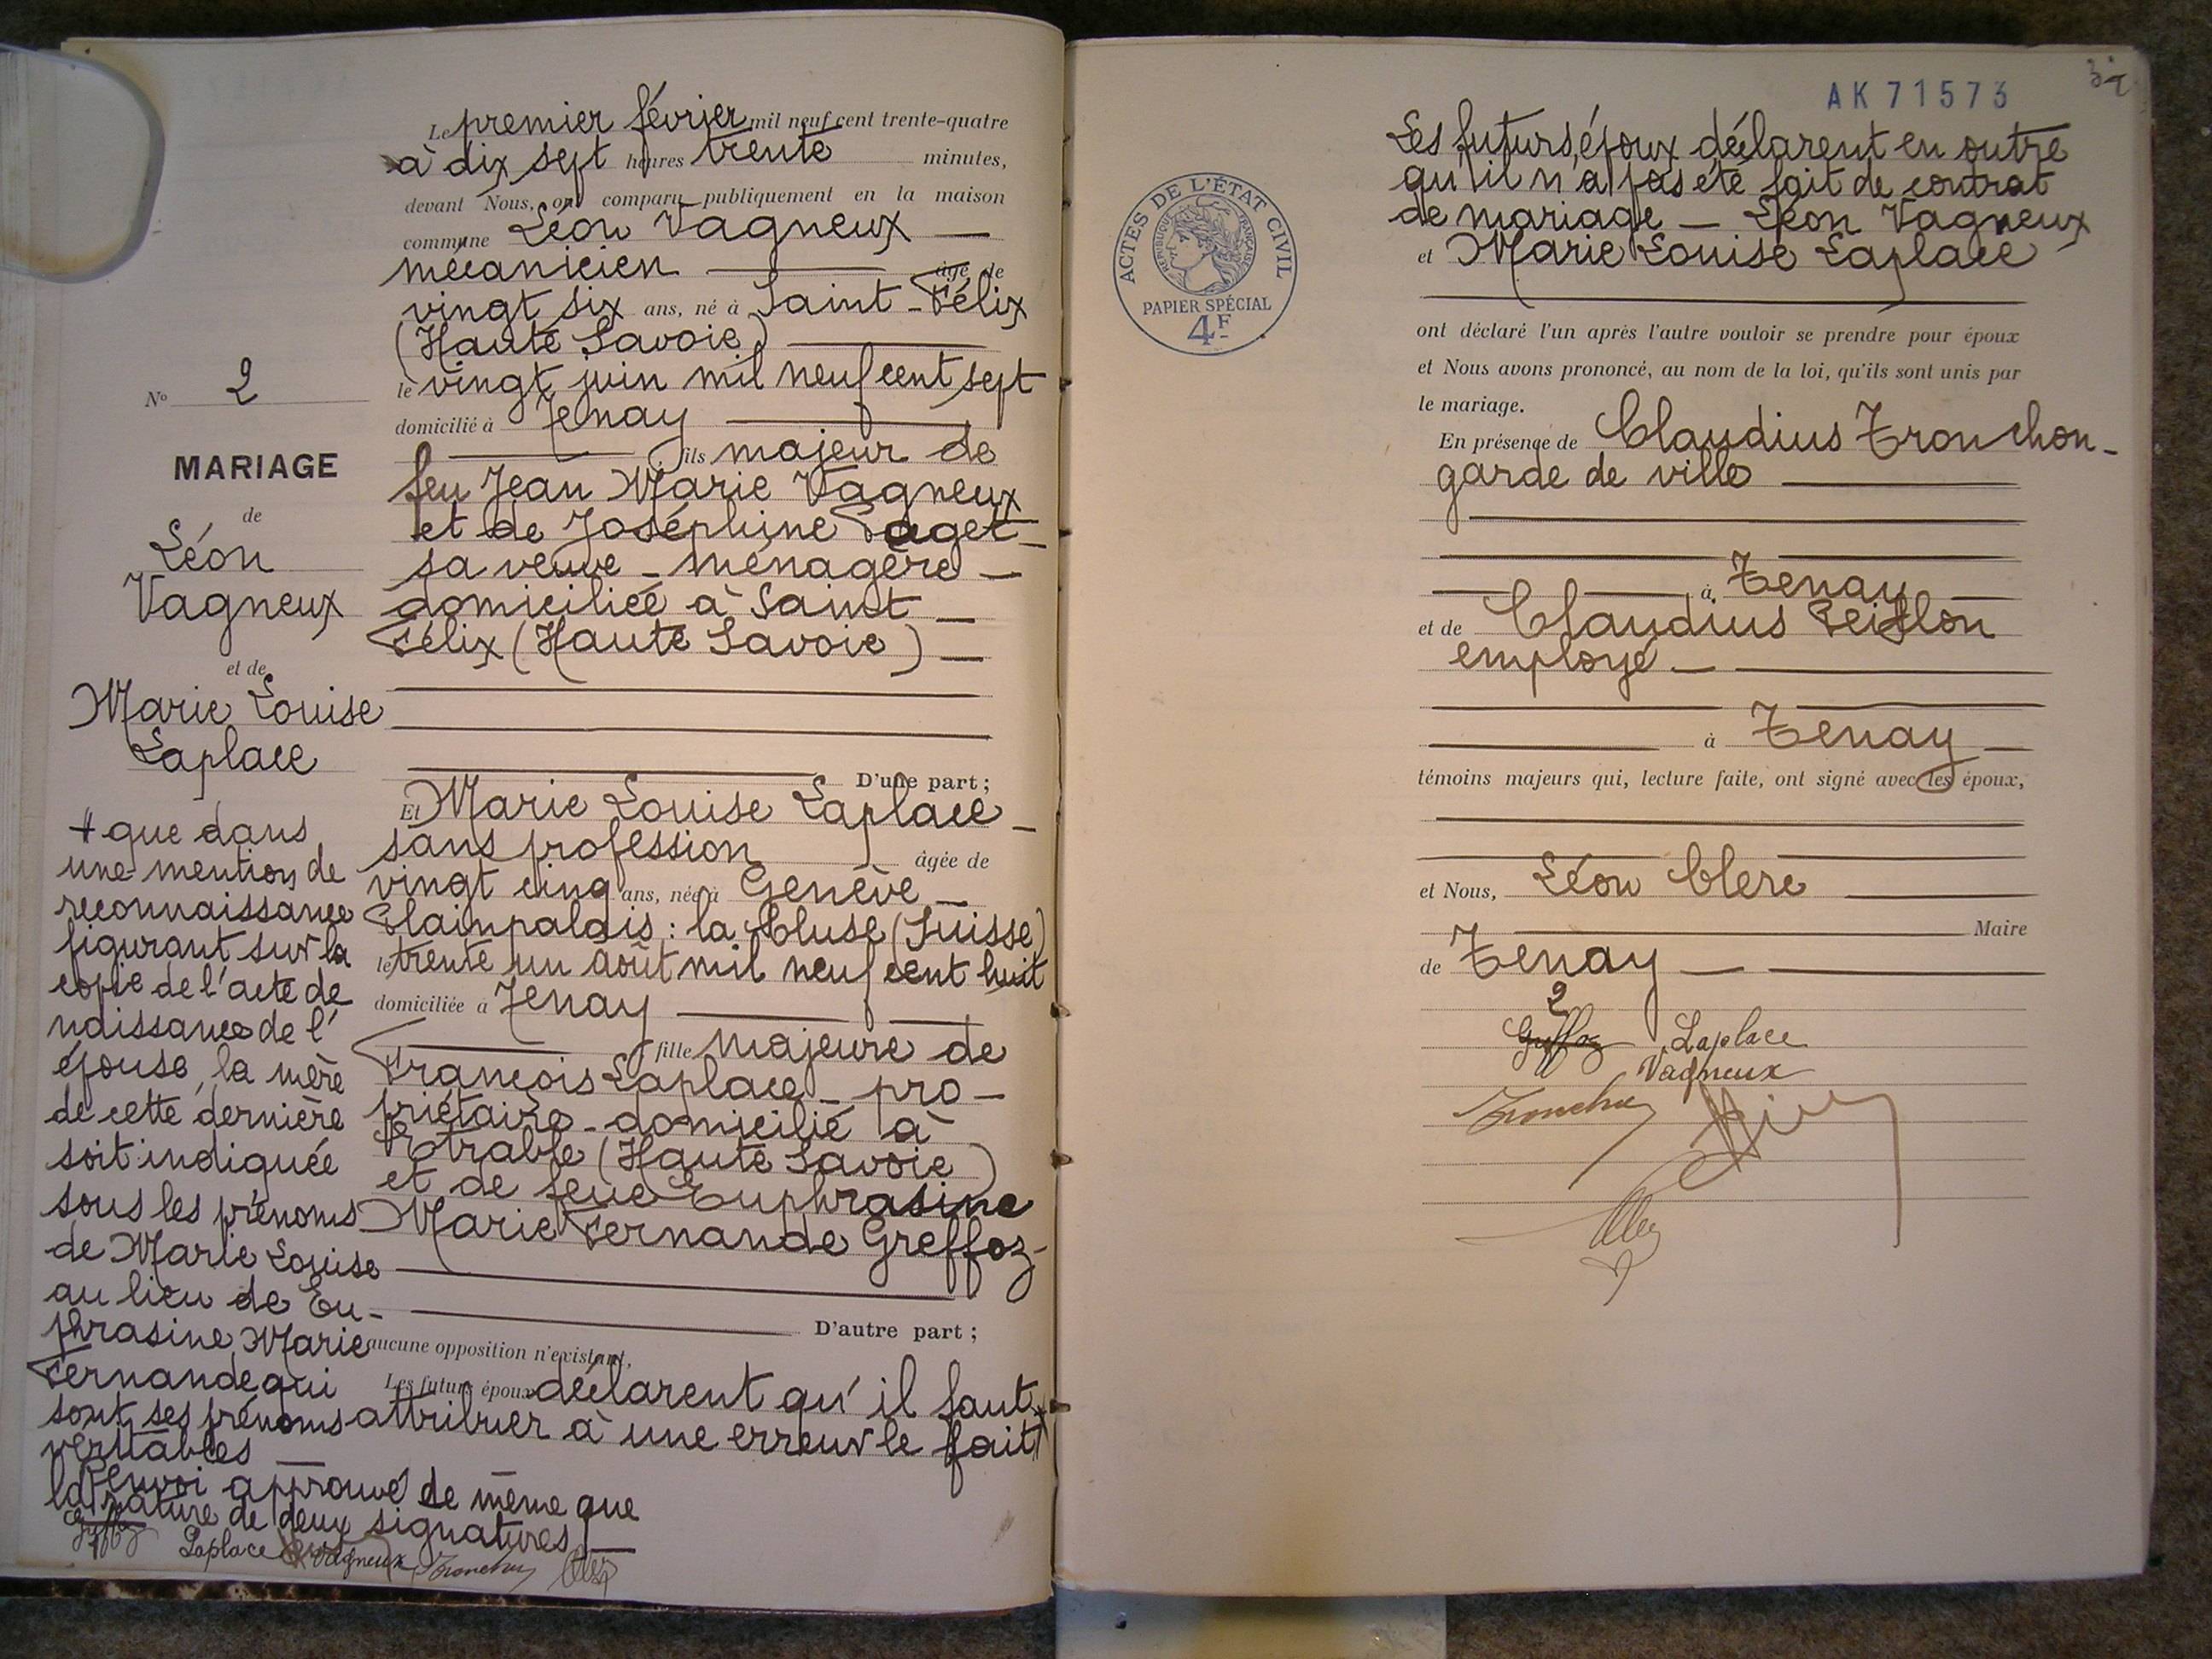 Le premier février mil neuf cent trente-quatre
à dix sept heures trente minutes,
devant Nous, ont comparu publiquement en la maison
commune Léon Vagneux —
mécanicien — âgé de
vingt six ans, né à Saint-Félix
(Haute Savoie) —
le vingt juin mil neuf cent sept
domicilié à Tenay —
— fils majeur de
feu Jean Marie Vagneux
et de Joséphine Paget —
sa veuve — ménagère —
domiciliée à Saint —
Félix (Haute Savoie) —
D'une part ;
Et Marie Louise Laplace —
sans profession âgée de
vingt cinq ans, née à Genève —
Plainpalais : la Cluse (Suisse)
le trente un août mil neuf cent huit
domiciliée à Tenay —
— fille majeure de
François Laplace — pro-
priétaire — domicilié à
Etrable (Haute Savoie)
et de feue Euphrasine
Marie Fernande Greffoz —
D'autre part ;
aucune opposition n'existant,
Les futurs époux déclarent qu'il faut
attribuer à une erreur le fait +
N° 2
MARIAGE
de
Léon
Vagneux
et de
Marie Louise
Laplace
+ que dans
une mention de
reconnaissance
figurant sur la
copie de l'acte de
naissance de l'
épouse, la mère
de cette dernière
soit indiquée
sous les prénoms
de Marie Louise
au lieu de Eu-
phrasine Marie
Fernande qui
sont ses prénoms
véritables —
Renvoi approuvé de même que
la rature de deux signatures —
Laplace Vagneux Tronchon
AK 71573
ACTES DE L'ÉTAT CIVIL
RÉPUBLIQUE FRANÇAISE
PAPIER SPÉCIAL
4F
Les futurs époux déclarent en outre
qu'il n'a pas été fait de contrat
de mariage — Léon Vagneux
et Marie Louise Laplace
ont déclaré l'un après l'autre vouloir se prendre pour époux
et Nous avons prononcé, au nom de la loi, qu'ils sont unis par
le mariage.
En présence de Claudius Tronchon —
garde de ville —
— à Tenay —
et de Claudius
employé —
— à Tenay —
témoins majeurs qui, lecture faite, ont signé avec les époux,
et Nous, Léon Clerc —
Maire
de Tenay —
2
Greffoz Laplace
Vagneux
Tronchon